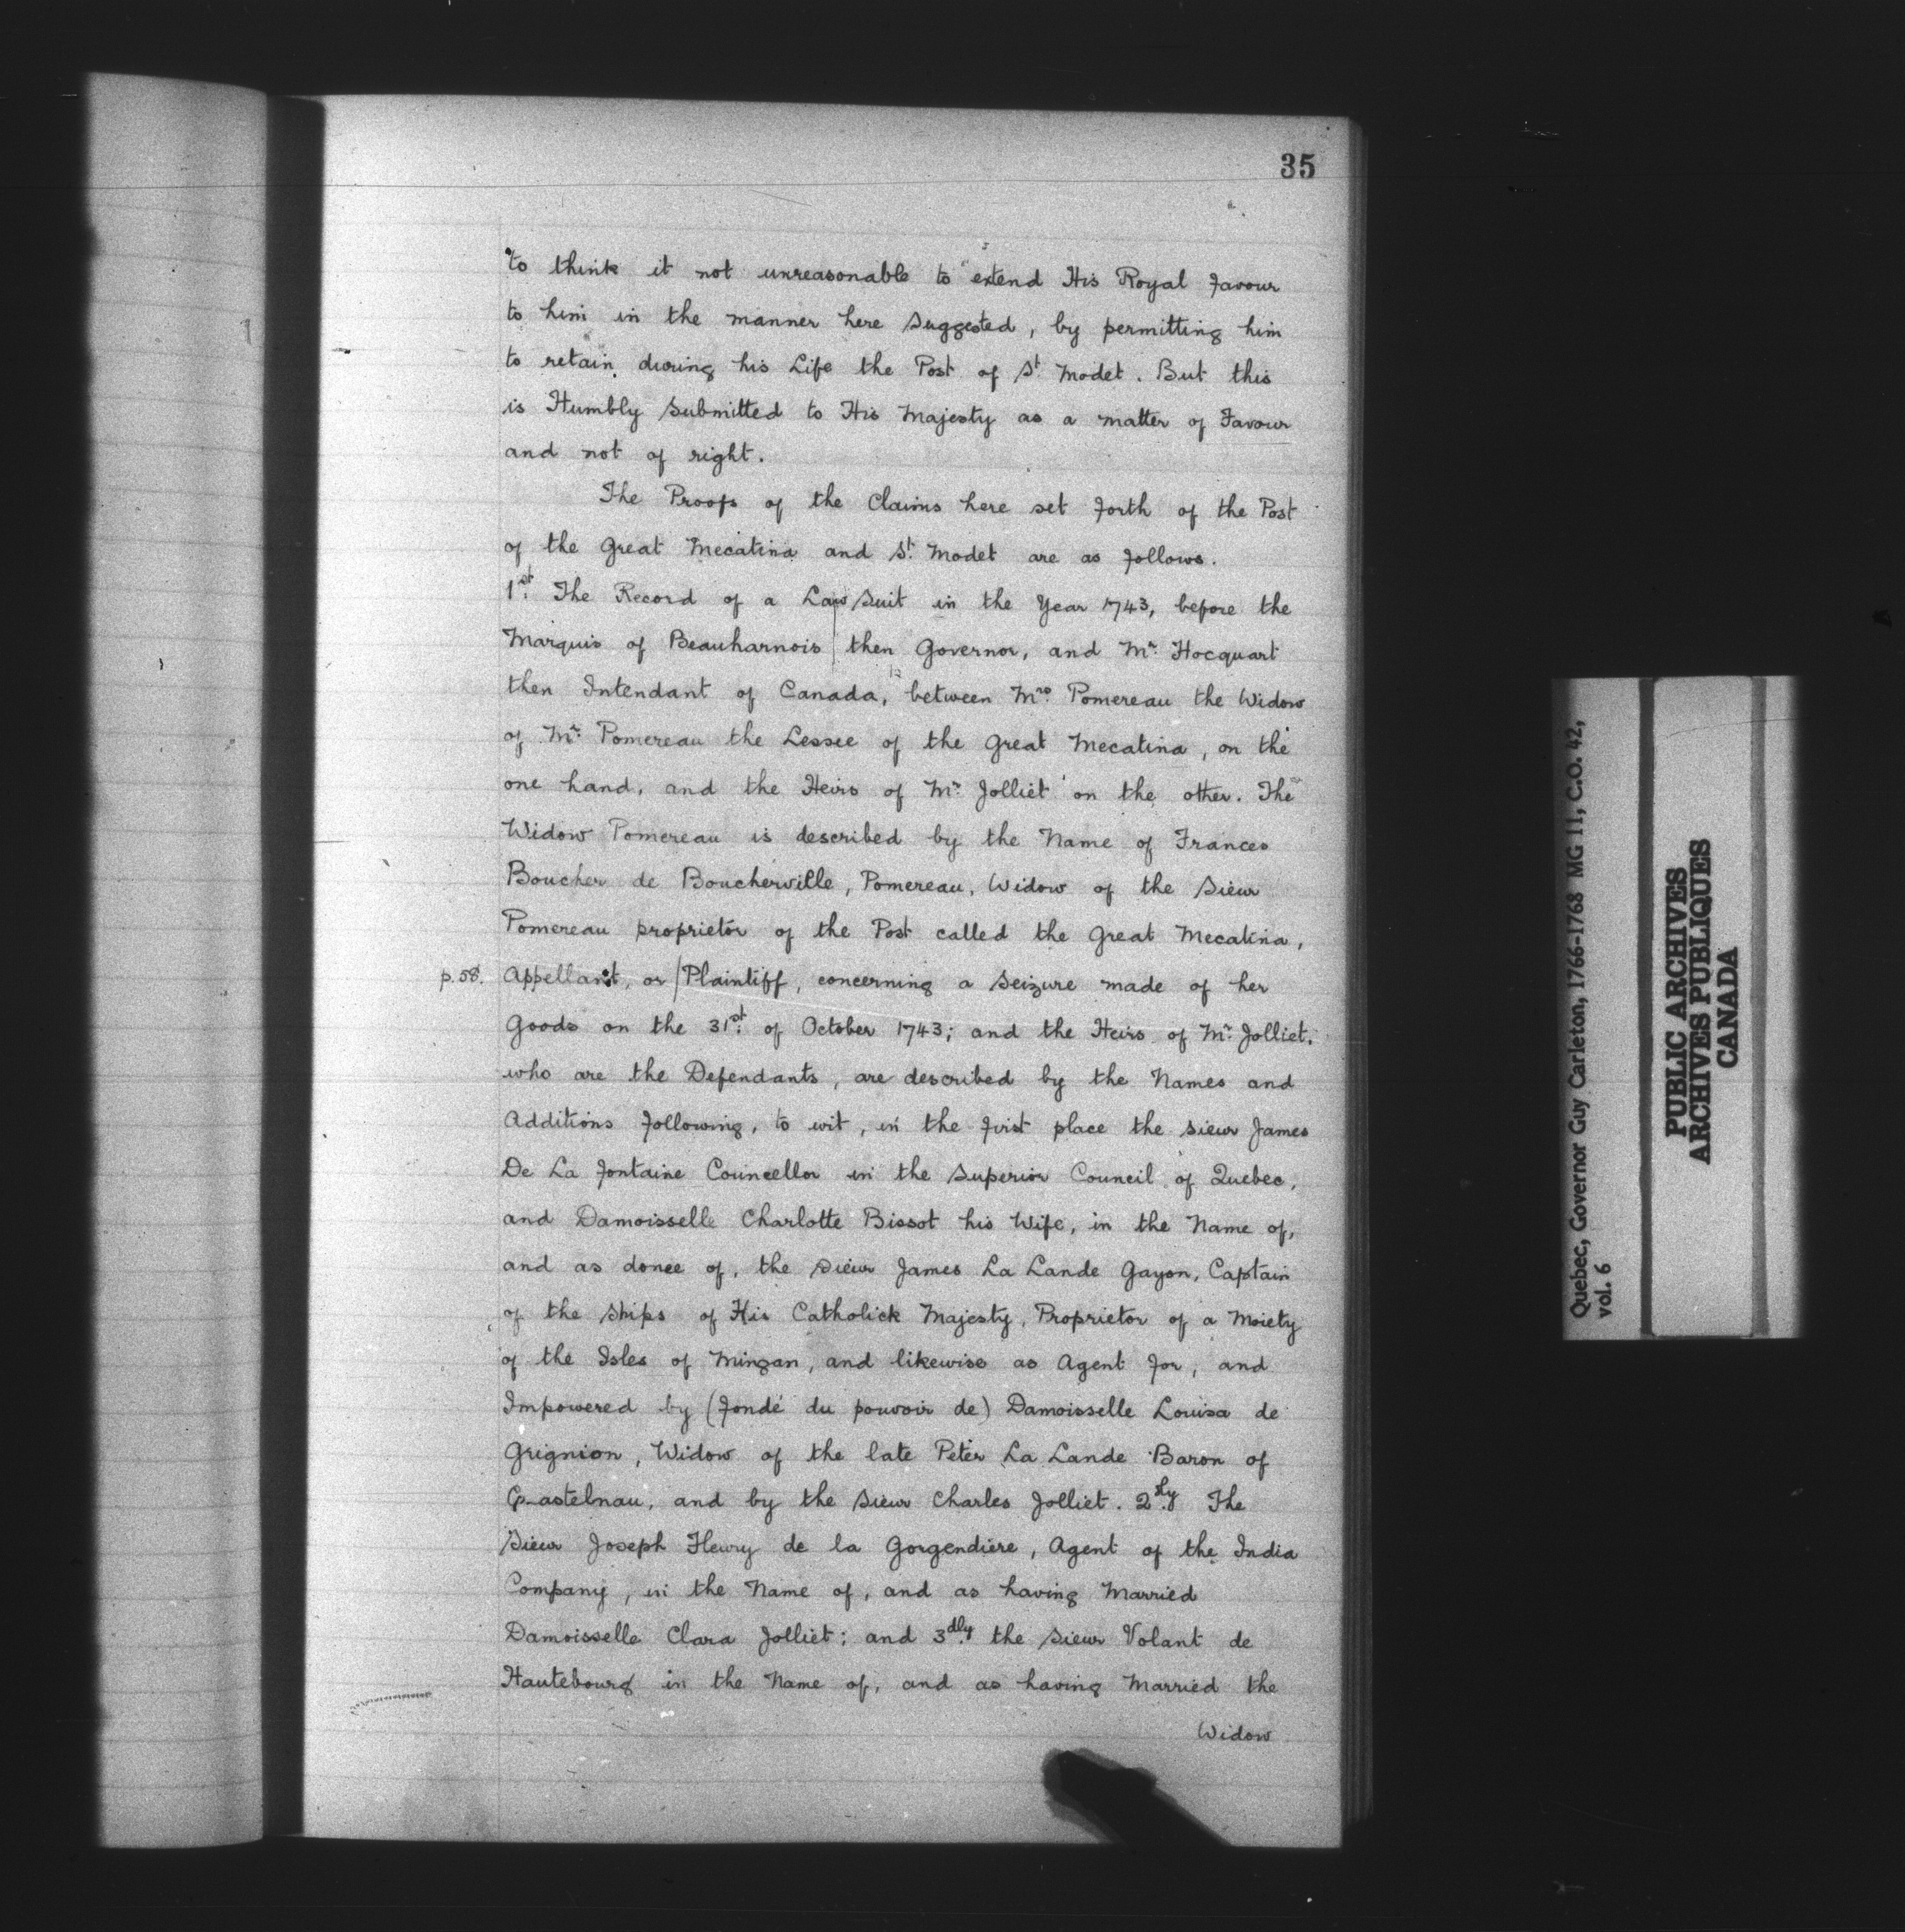 35
to think it not unreasonable to extend His Royal Favour
to him in the manner here suggested, by permitting him
to retain during his Life the Post of St. Modet. But this
is Humbly submitted to His Majesty as a matter of Favour
and not of right.
The Proofs of the Claims here set forth of the Post
of the Great Mecatina and St. Modet are as follows.
1st. The Record of a Law Suit in the Year 1743, before the
Marquis of Beauharnois then Governor, and Mr. Hocquart
then Intendant of Canada, between Mrs. Pomereau the Widow
of Mr. Pomereau the Lessee of the Great Mecatina, on the
one hand, and the Heirs of Mr. Jolliet on the other. The
Widow Pomereau is described by the Name of Frances
Boucher de Boucherville, Pomereau, Widow of the Sieur
Pomereau proprietor of the Post called the Great Mecatina,
p.58. Appellant, or Plaintiff, concerning a Seizure made of her
Goods on the 31st. of October 1743; and the Heirs of Mr. Jolliet,
who are the Defendants, are described by the Names and
Additions following, to wit, in the first place the Sieur James
De La Fontaine Councellor in the Superior Council of Quebec,
and Damoisselle Charlotte Bissot his Wife, in the Name of,
and as donee of, the Sieur James La Lande Gayon, Captain
of the Ships of His Catholick Majesty, Proprietor of a Moiety
of the Isles of Mingan, and likewise as Agent for, and
Impowered by (fondé du pouvoir de) Damoisselle Louisa de
Grignion, Widow of the late Peter La Lande Baron of
Castelnau, and by the Sieur Charles Jolliet. 2dly. The
Sieur Joseph Fleury de la Gorgendiere, Agent of the India
Company, in the Name of, and as having Married
Damoisselle Clara Jolliet; and 3dly. the Sieur Volant de
Hautebourg in the Name of, and as having Married the
Widow
Quebec, Governor Guy Carleton, 1766-1768 MG 11, C.O. 42,
vol. 6
PUBLIC ARCHIVES
ARCHIVES PUBLIQUES
CANADA